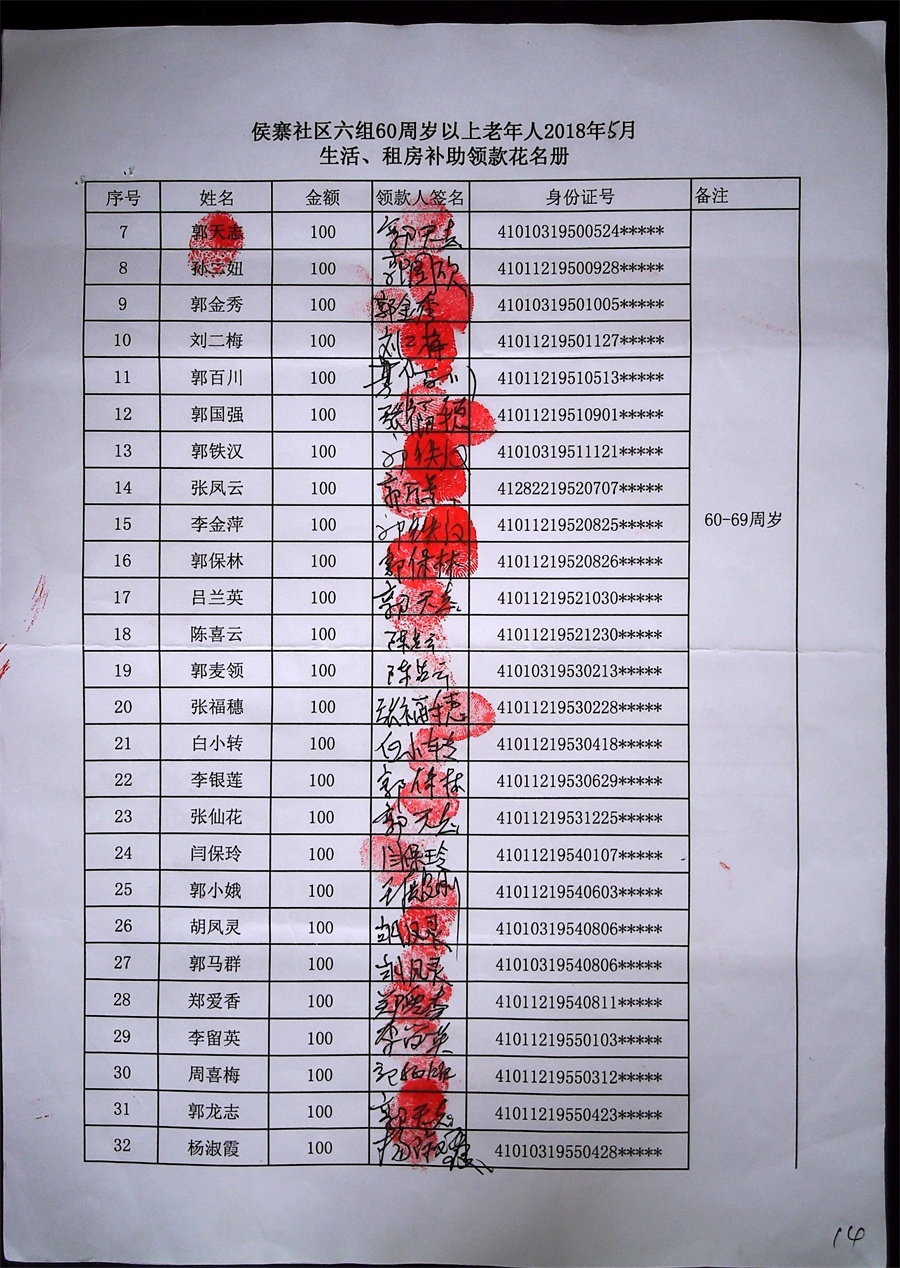 侯寨社区六组60周岁以上老年人2018年5月
生活、租房补助领款花名册
序号 姓名 金额 领款人签名 身份证号 备注
7 郭天志 100 郭天志 41010319500524*****
8 孙二妞 100 41011219500928*****
9 郭金秀 100 郭金秀 41010319501005*****
10 刘二梅 100 刘二梅 41011219501127*****
11 郭百川 100 41011219510513*****
12 郭国强 100 张福穗 41011219510901*****
13 郭铁汉 100 郭铁汉 41010319511121*****
14 张凤云 100 41282219520707*****
15 李金萍 100 郭铁汉 41011219520825***** 60-69周岁
16 郭保林 100 郭保林 41011219520826*****
17 吕兰英 100 郭天志 41011219521030*****
18 陈喜云 100 陈喜云 41011219521230*****
19 郭麦领 100 陈喜云 41010319530213*****
20 张福穗 100 张福穗 41011219530228*****
21 白小转 100 白小转 41011219530418*****
22 李银莲 100 郭保林 41011219530629*****
23 张仙花 100 郭天志 41011219531225*****
24 闫保玲 100 闫保玲 41011219540107*****
25 郭小娥 100 41011219540603*****
26 胡凤灵 100 胡凤灵 41010319540806*****
27 郭马群 100 胡凤灵 41010319540806*****
28 郑爱香 100 郑爱香 41011219540811*****
29 李留英 100 李留英 41011219550103*****
30 周喜梅 100 41011219550312*****
31 郭龙志 100 郭天志 41011219550423*****
32 杨淑霞 100 杨淑霞 41010319550428*****
14